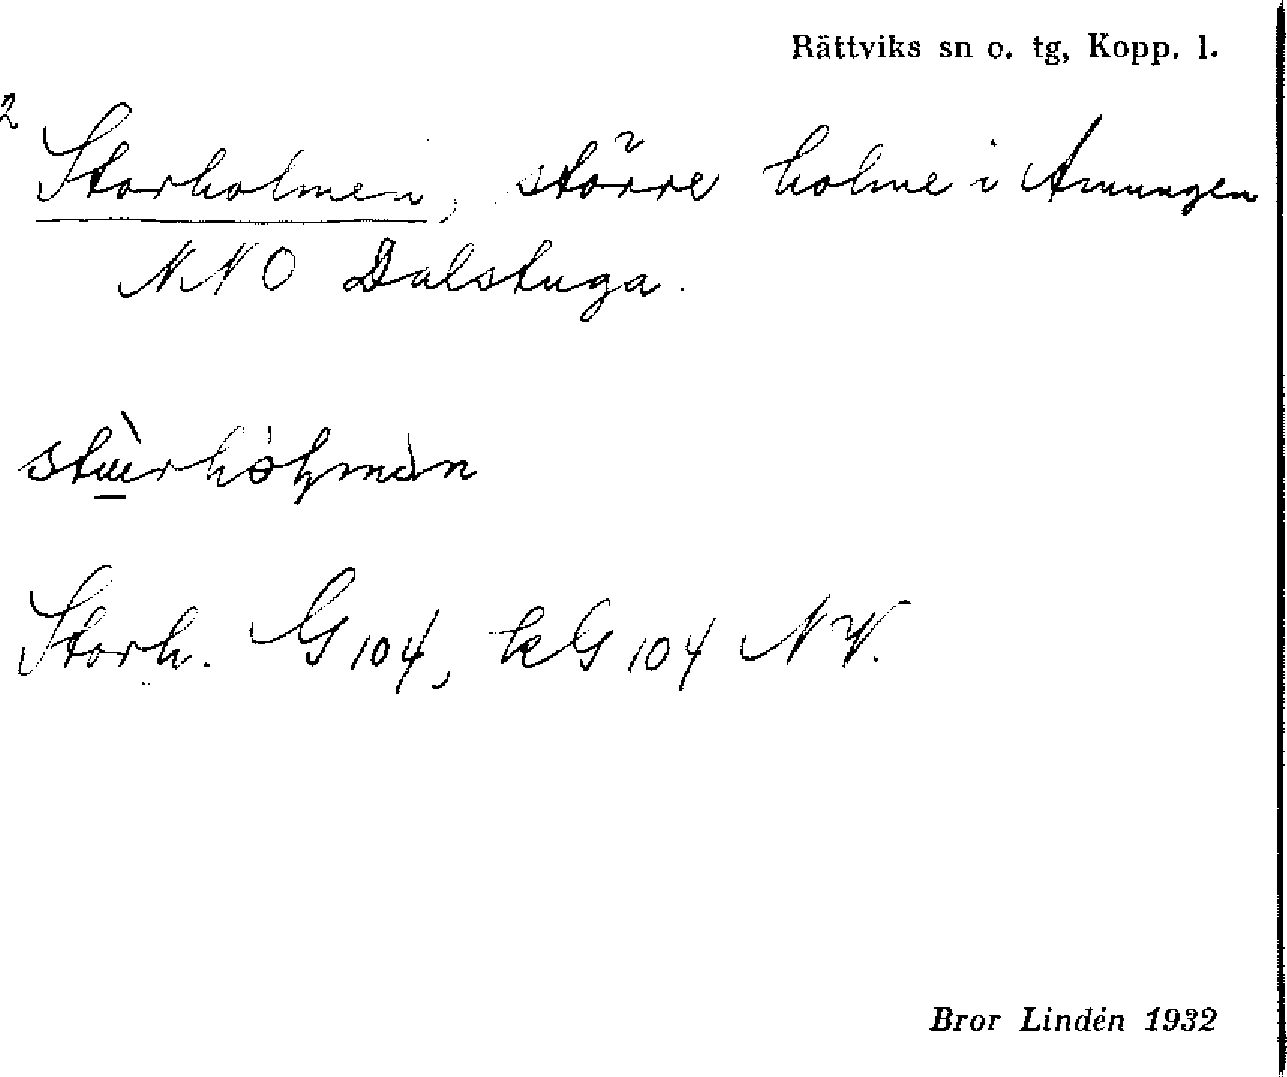 Rättviks sn o. tg, Kopp. l.
2
Storholmen, större holme i Amungen
NNO Dalstuga.
Storh. G 104, kG 104 NV.
Bror Lindén 1932